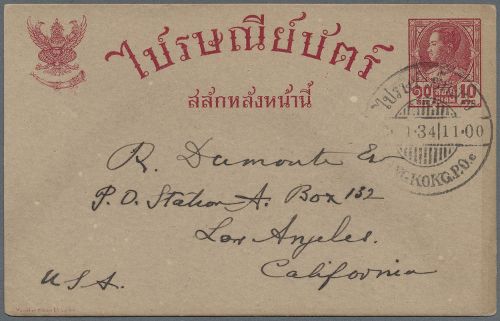 ไปรษณียบัตร
สลักหลังหน้านี้
๑๐ 10
1·34|11·00
KOKG.P.O.
P.O. Station A. Box 132
Los Angeles.
California
U.S.A.